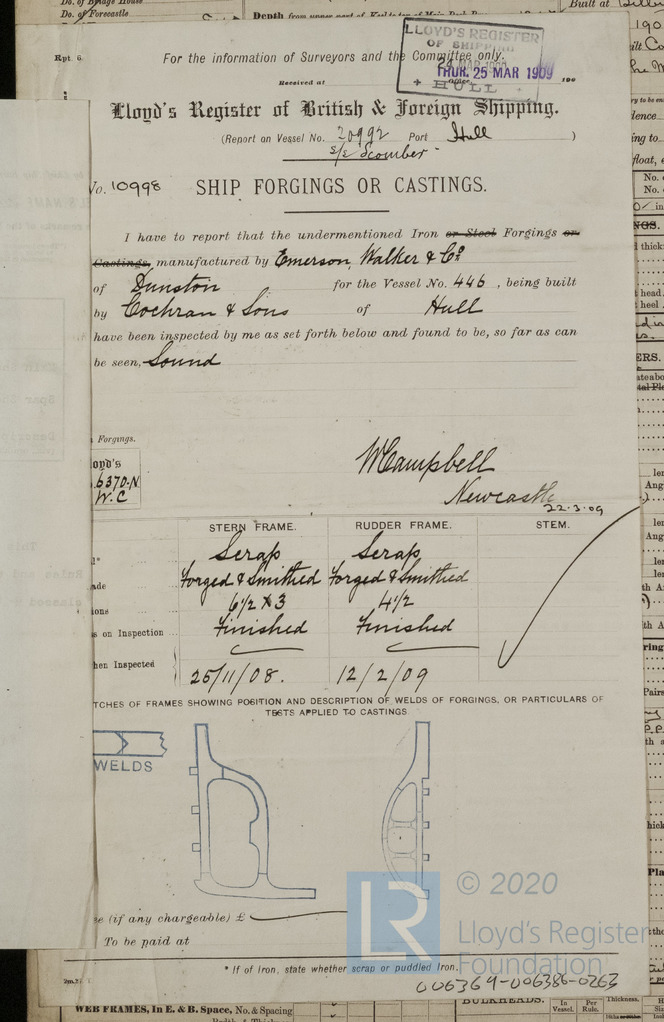 Do. of Bridge House
Do. of Forecastle
Built at
Rpt. 6.
For the information of Surveyors and the Committee only.
LLOYD'S REGISTER
OF SHIPPING
THUR. 25 MAR 1909
HULL
Received at
190
Lloyd's Register of British & Foreign Shipping.
(Report on Vessel No. 20992 Port Hull )
s/s Scomber
No. 10998 SHIP FORGINGS OR CASTINGS.
I have to report that the undermentioned Iron or Steel Forgings or
Castings, manufactured by Emerson, Walker & Co.
of Dunston for the Vessel No. 446, being built
by Cochran & Sons of Hull
have been inspected by me as set forth below and found to be, so far as can
be seen, Sound
Forgings.
loyd's
6370-N
W.C
W Campbell
Newcastle
22.3.09
STERN FRAME. RUDDER FRAME. STEM.
Scrap Scrap
ade Forged & Smithed Forged & Smithed
ions 6 1/2 x 3 4 1/2
s on Inspection Finished Finished
hen Inspected 25/11/08. 12/2/09
TCHES OF FRAMES SHOWING POSITION AND DESCRIPTION OF WELDS OF FORGINGS, OR PARTICULARS OF
TESTS APPLIED TO CASTINGS
WELDS
e (if any chargeable) £
To be paid at
* If of Iron, state whether scrap or puddled Iron.
© 2020
LR Lloyd's Register
Foundation
006369-006386-0263
WEB FRAMES, In E. & B. Space, No. & Spacing
BULKHEADS.
In Vessel
Per Rule.
Thickness.